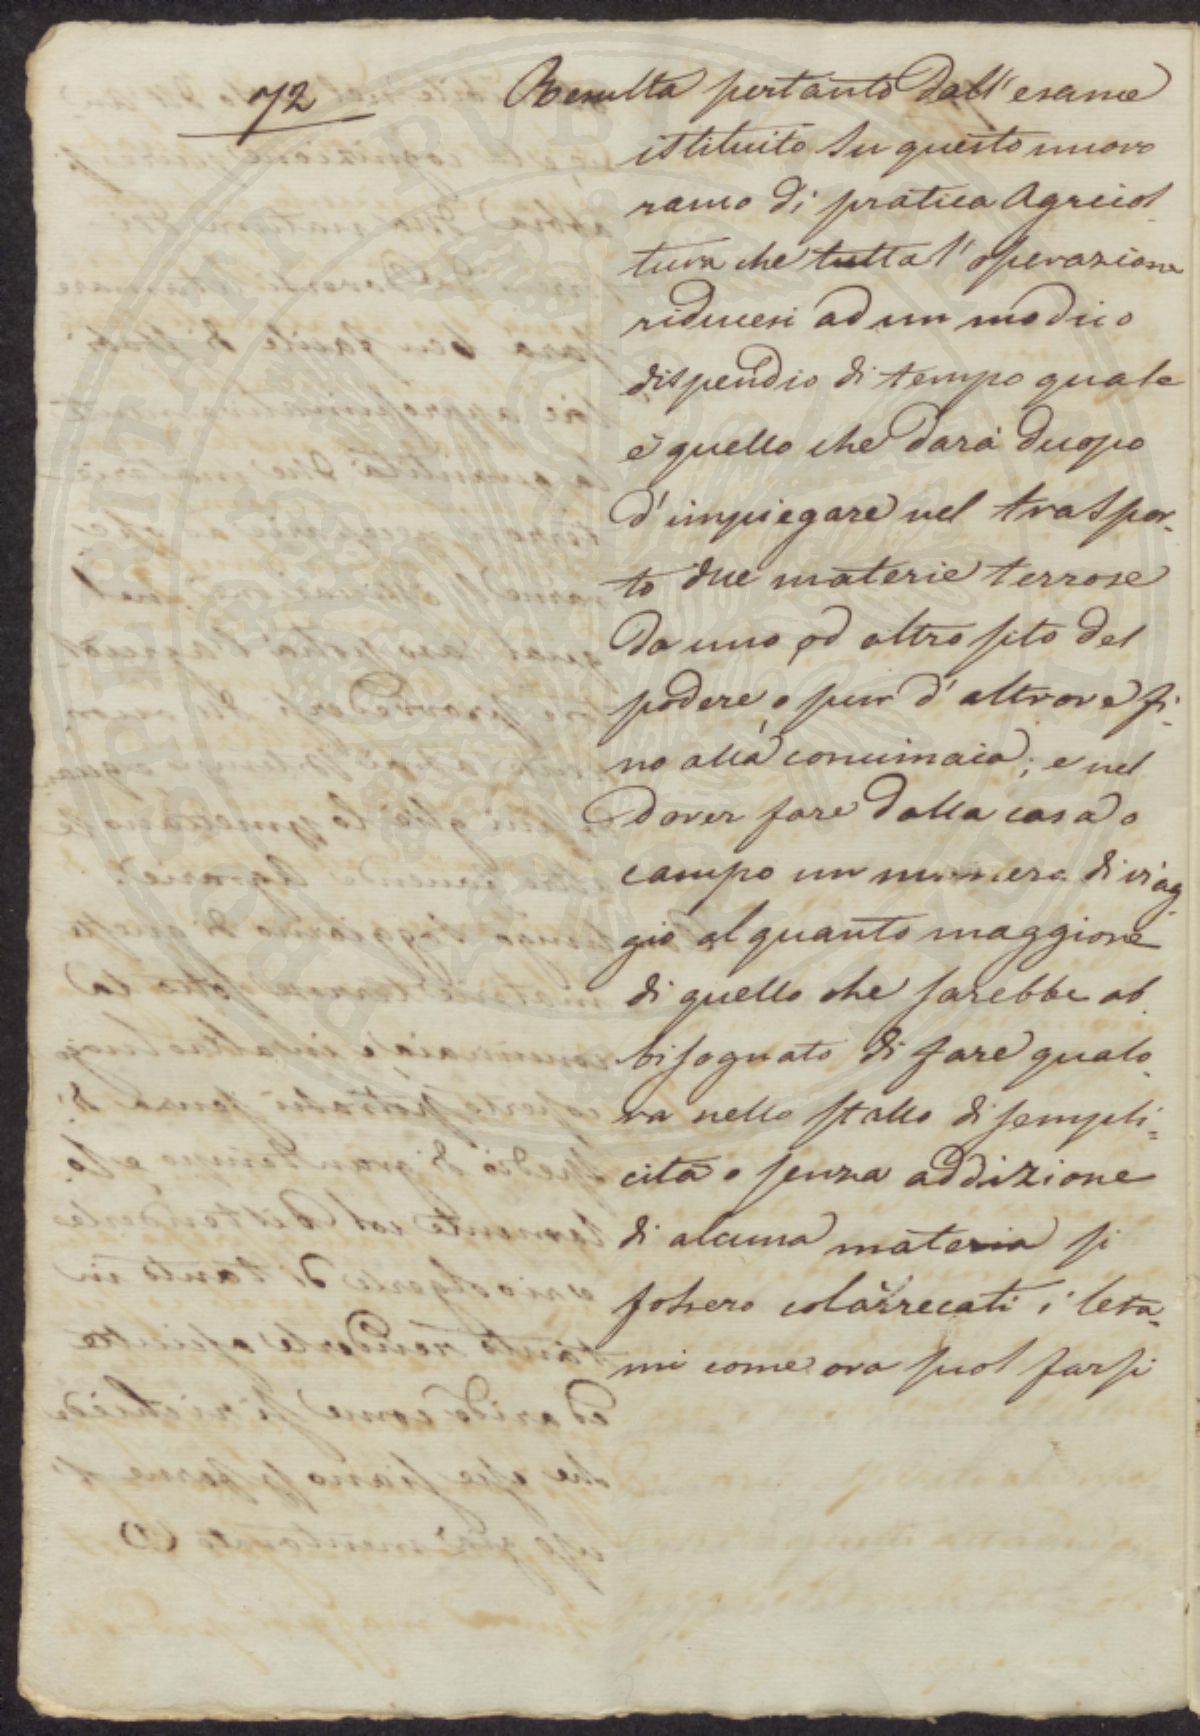 72
Resulta pertanto dall'esame
istituito su questo nuovo
ramo di pratica Agricol
tura che tutta l'operazione
riducesi ad un modico
dispendio di tempo quale
è quello che darà duopo
d'impiegare nel traspor-
to due materie terrose
da uno ad altro sito del
podere o pur d'altrove fi-
no alla concimaia; e nel
dover fare dalla casa o
campo un numero di viag-
gio alquanto maggiore
di quello che sarebbe ab
bisognato di fare qualo-
ra nello stallo di sempli=
cità o senza addizione
di alcuna materia si
fossero colà rrecati i leta-
mi come ora suol farsi